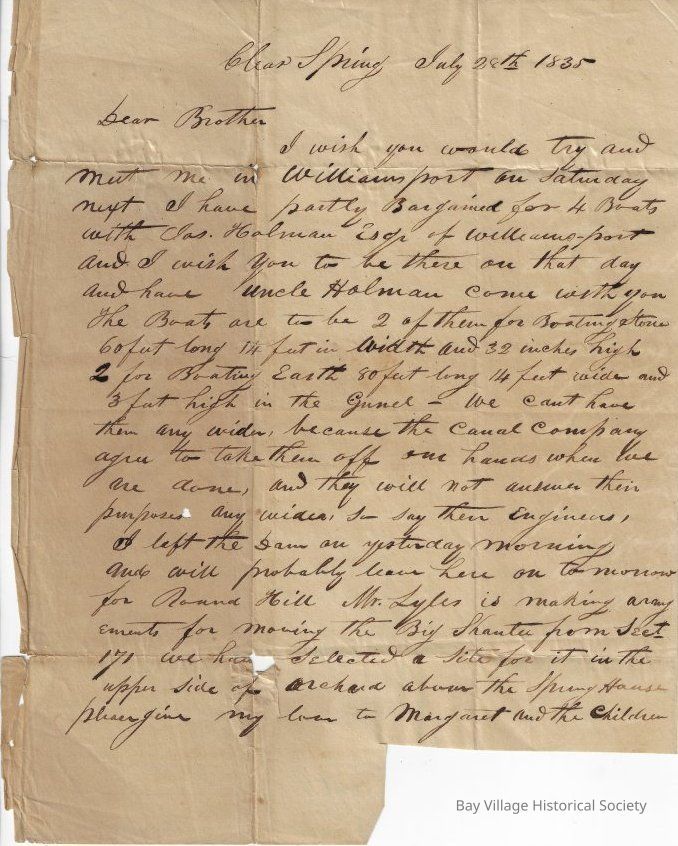 Clear Spring July 28th 1835
Dear Brother
I wish you would try and
meet me in Williamsport on Saturday
next I have partly Bargained for 4 Boats
with Jas. Holman Esqr of Williams-port
and I wish you to be there on that day
and have Uncle Holman come with you
The Boats are to be 2 of them for Boating Stone
60 feet long 14 feet in width and 32 inches high
2 for Boating Earth 80 feet long 14 feet wide and
3 feet high in the Gunel - We cant have
them any wider, because the Canal Company
agree to take them off our hands when we
are done, and they will not answer their
purposes any wider, so say their Engineers,
I left the Dam on yesterday morning
and will probably leave here on to morrow
for Round Hill Mr. Lyles is making arang
ements for moving the Big Shantee from Sect
171 we have selected a site for it in the
upper side of orchard above the Spring House
please give my love to Margaret and the children
Bay Village Historical Society